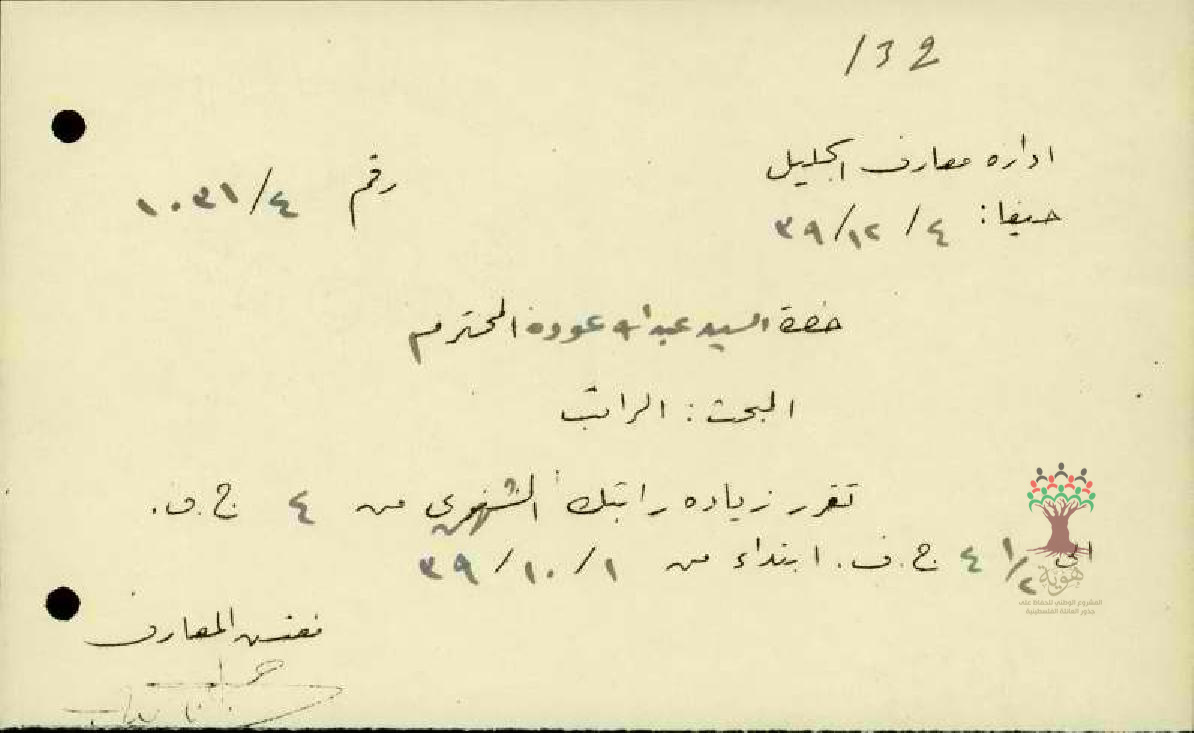 132
ادارة معارف الجليل
رقم ١٠٣١/٤
حيفا: ٤/١٢/٣٩
حضرة السيد عبدالله عودة المحترم
البحث: الراتب
تقرر زيادة راتبك الشهري من ٤ ج.ف.
الى ٤ ١/٢ ج.ف. ابتداء من ١/١٠/٣٩
مفتش المعارف
هوية
المشروع الوطني للحفاظ على
جذور العائلة الفلسطينية